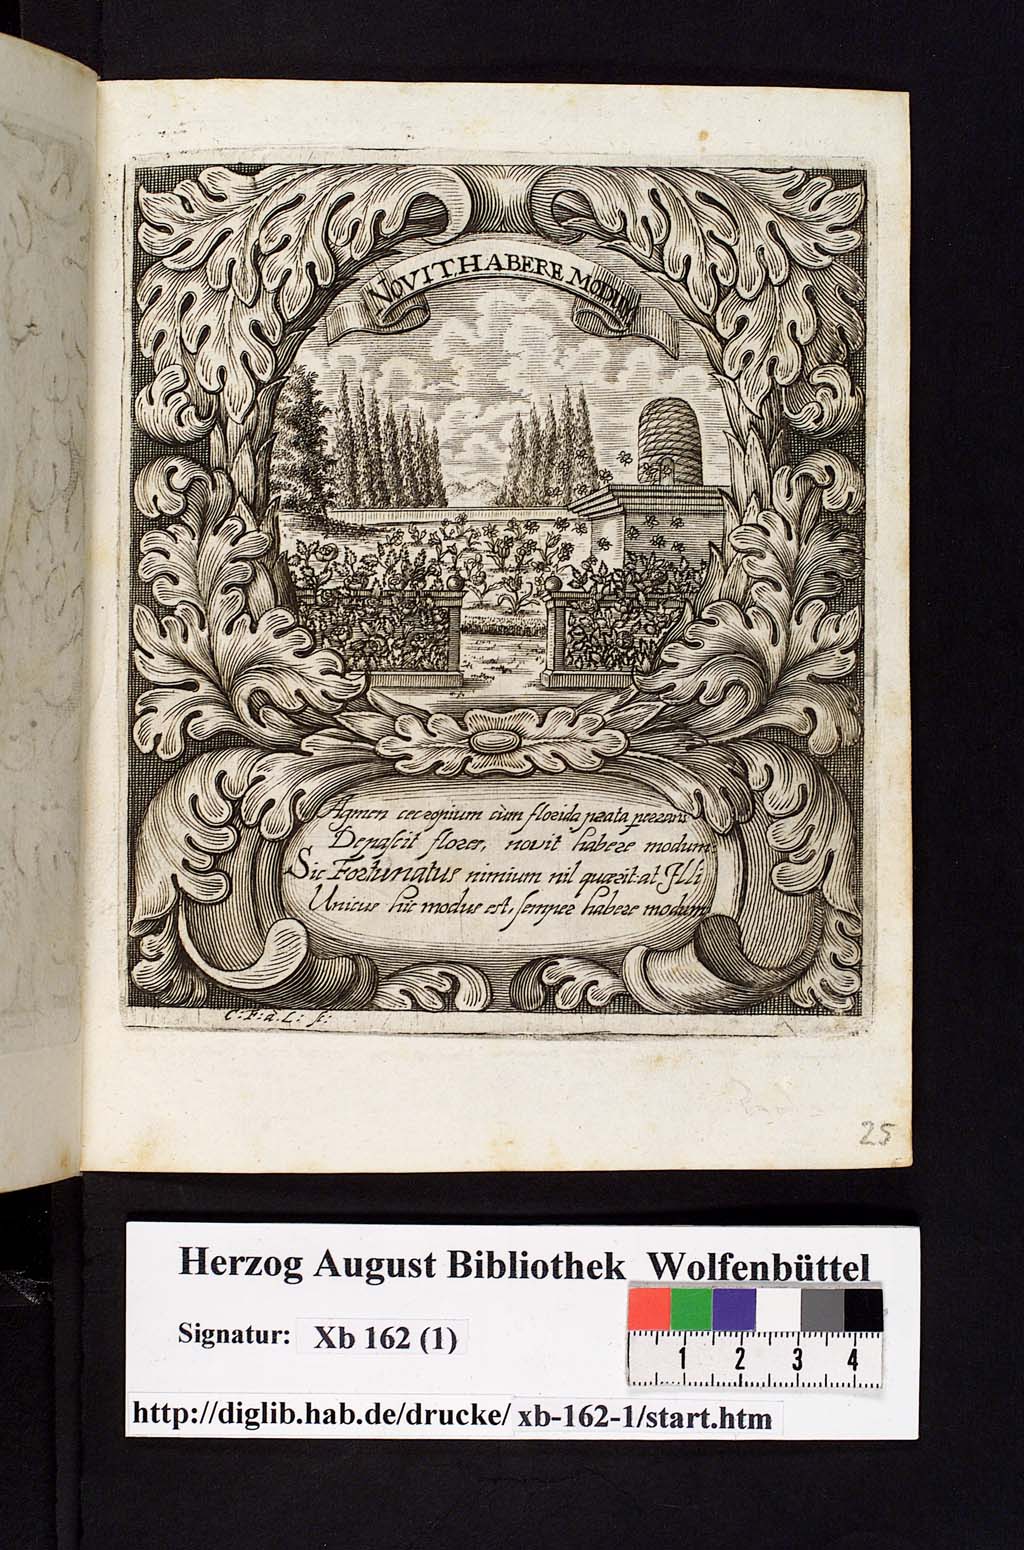 NOVIT HABERE MODUM
Agmen cecropium cùm florida prata pererrans
Depascit flores, novit habere modum:
Sic Fortunatus nimium nil quærit: at Illi
Unicus hic modus est, semper habere modum
C: F: à L: f:
25
Herzog August Bibliothek Wolfenbüttel
Signatur: Xb 162 (1)
1 2 3 4
http://diglib.hab.de/drucke/ xb-162-1/start.htm